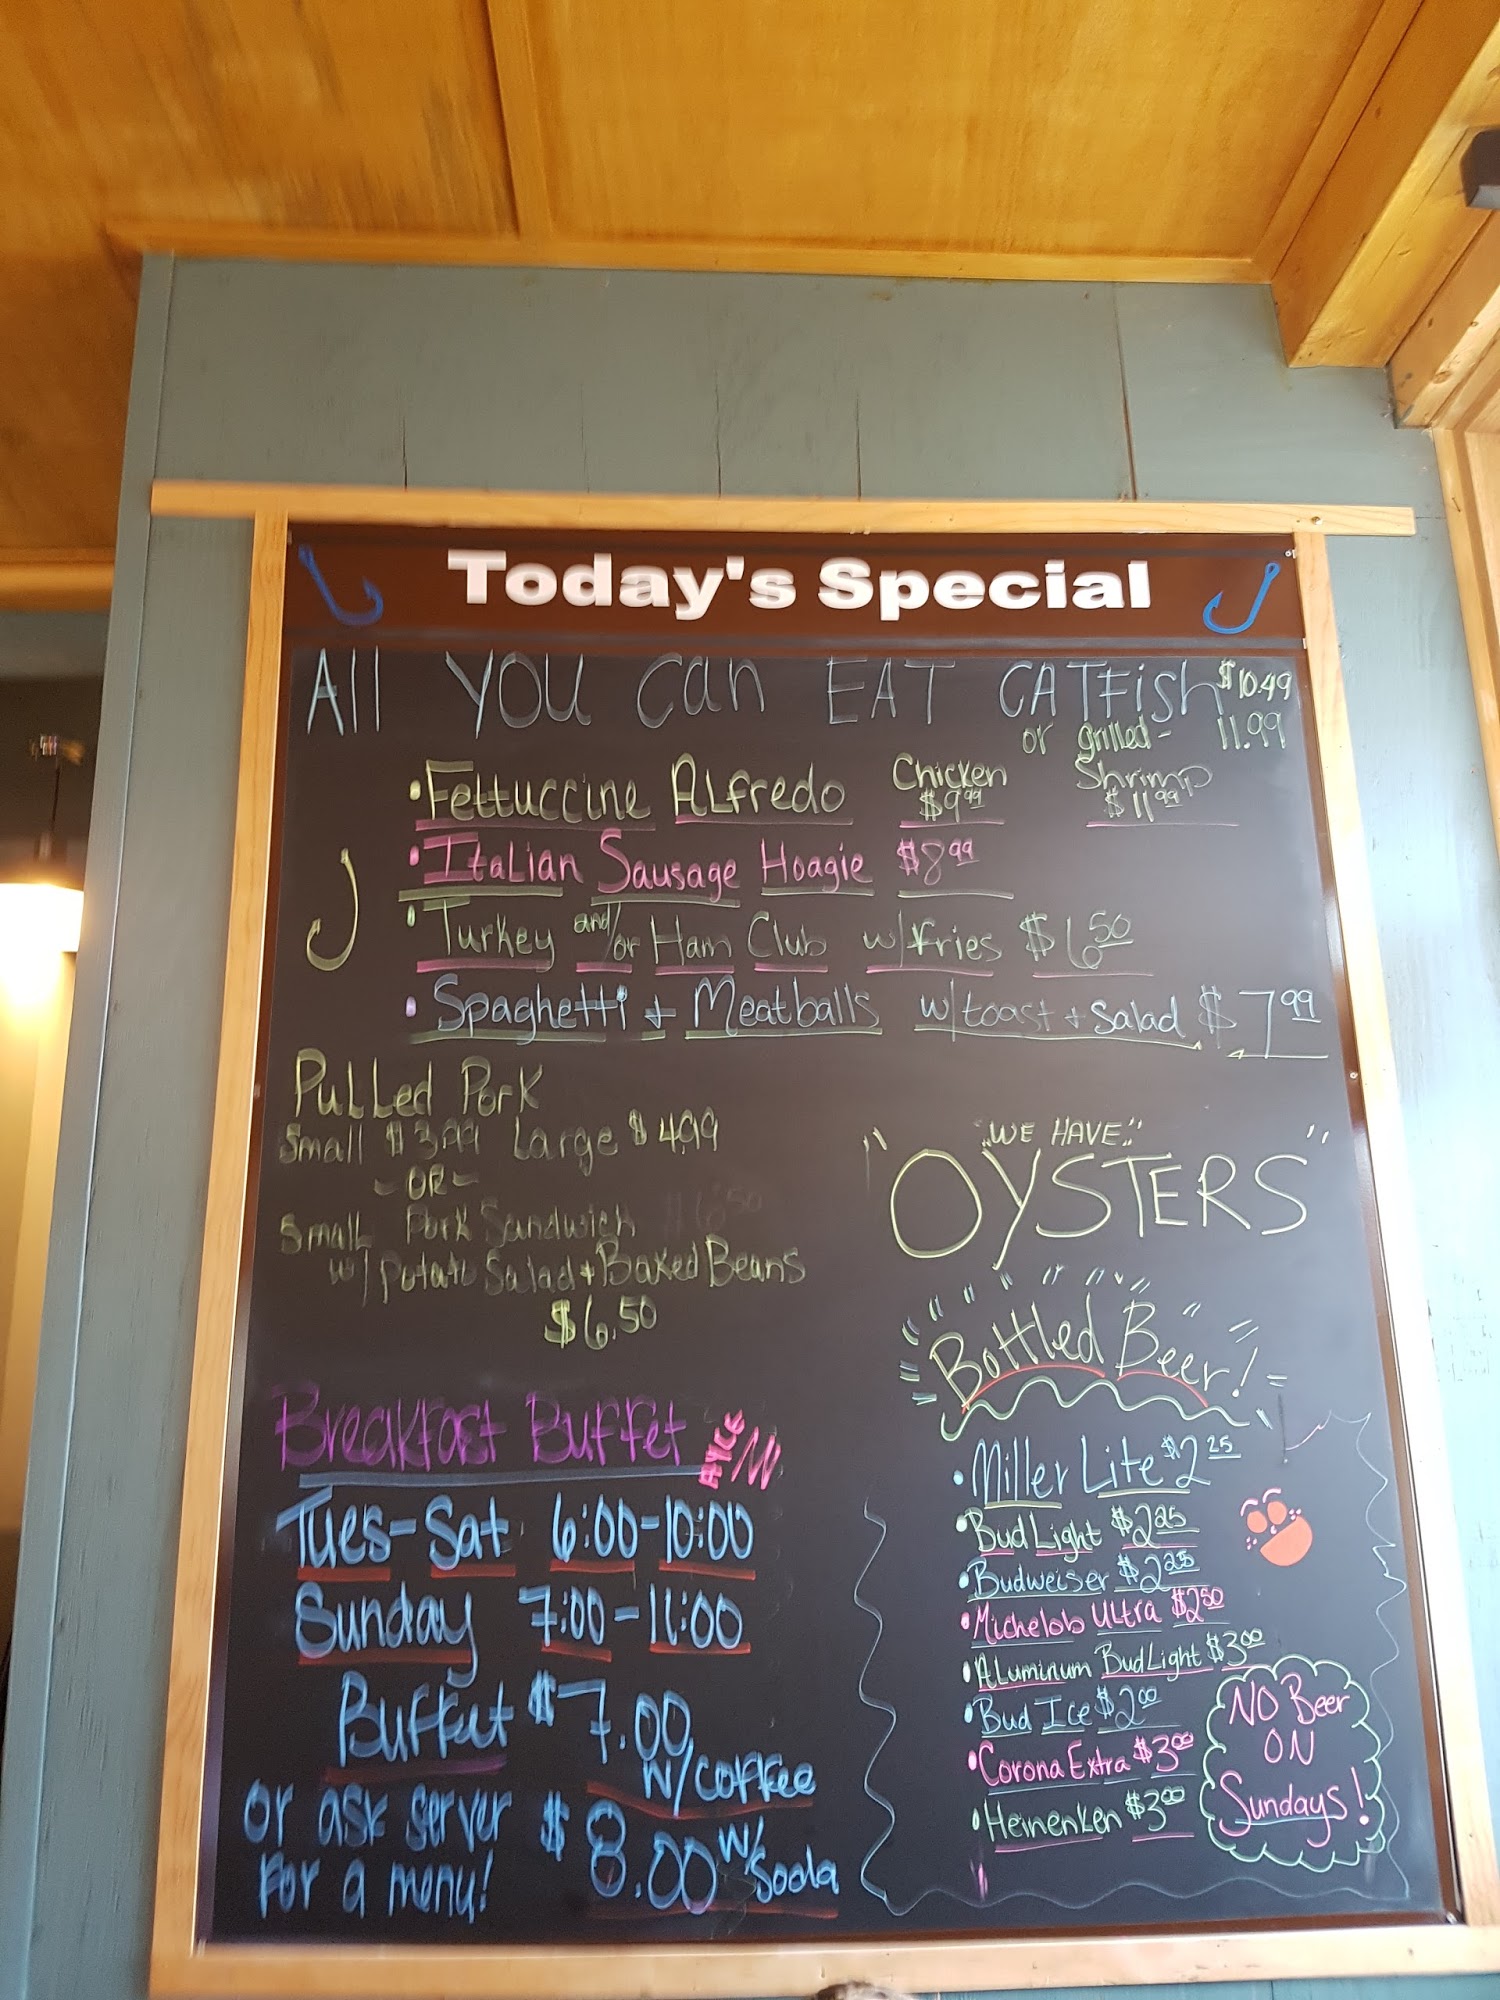 Today's Special
All YOU Can EAT CATFish $10.49
or grilled - 11.99
• Fettuccine Alfredo Chicken $9.99 Shrimp $11.99
• Italian Sausage Hoagie $8.99
• Turkey and/or Ham Club w/fries $6.50
• Spaghetti + Meatballs w/toast + Salad $7.99
Pulled Pork
Small $3.99 Large $4.99
- OR -
Small Pork Sandwich $6.50
w/ Potato Salad + Baked Beans
$6.50
"WE HAVE"
"OYSTERS"
Breakfast Buffet AYCE
Tues-Sat 6:00-10:00
Sunday 7:00-11:00
Buffet $7.00
w/coffee
or ask server $8.00 w/ Soda
for a menu!
Bottled Beer!
• Miller Lite $2.25
• Bud Light $2.25
• Budweiser $2.25
• Michelob Ultra $2.50
• Aluminum BudLight $3.00
• Bud Ice $2.00
• Corona Extra $3.00
• Heinenken $3.00
NO Beer
ON
Sundays!